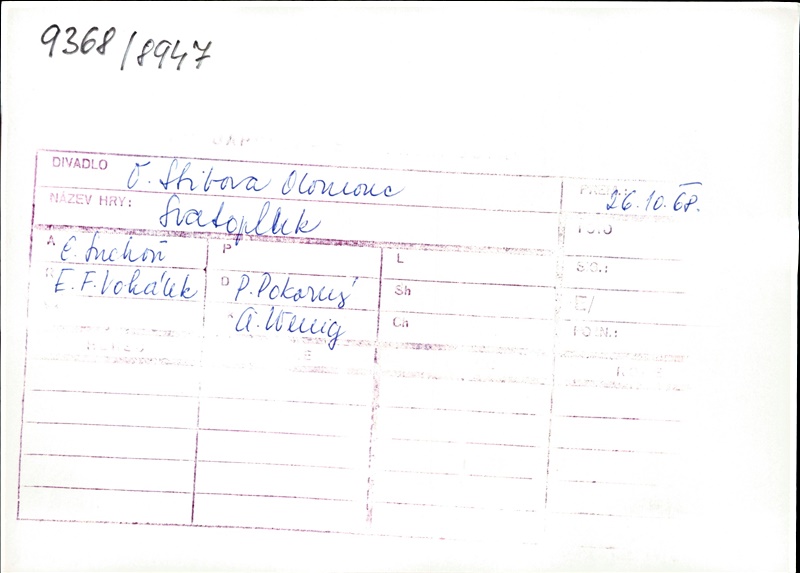 9368/8947
DIVADLO O. Stibora Olomouc
26.10.68.
NÁZEV HRY: Svatopluk
FOTO
A E. Suchoň
P
L
E. F. Vokálek
D P. Pokorný
Sh
A. Wenig
Ch